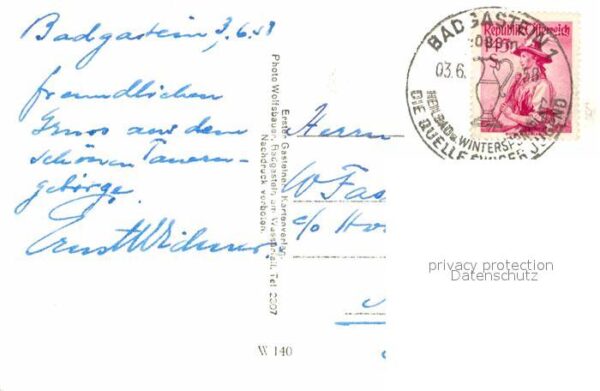 Badgastein, 3.6.53
freundlichen
Gruss aus dem
schönen Tauern-
gebirge.
Erster Gasteiner Kartenverlag,
Photo Wolfsbauer, Badgastein am Wasserfall, Tel. 2307
Nachdruck verboten.
W 140
Herrn
c/o
BADGASTEIN 1
03.6.
HEILBAD u. WINTERSPORTPLATZ
DIE QUELLE EWIGER JUGEND
Republik Österreich
privacy protection
Datenschutz